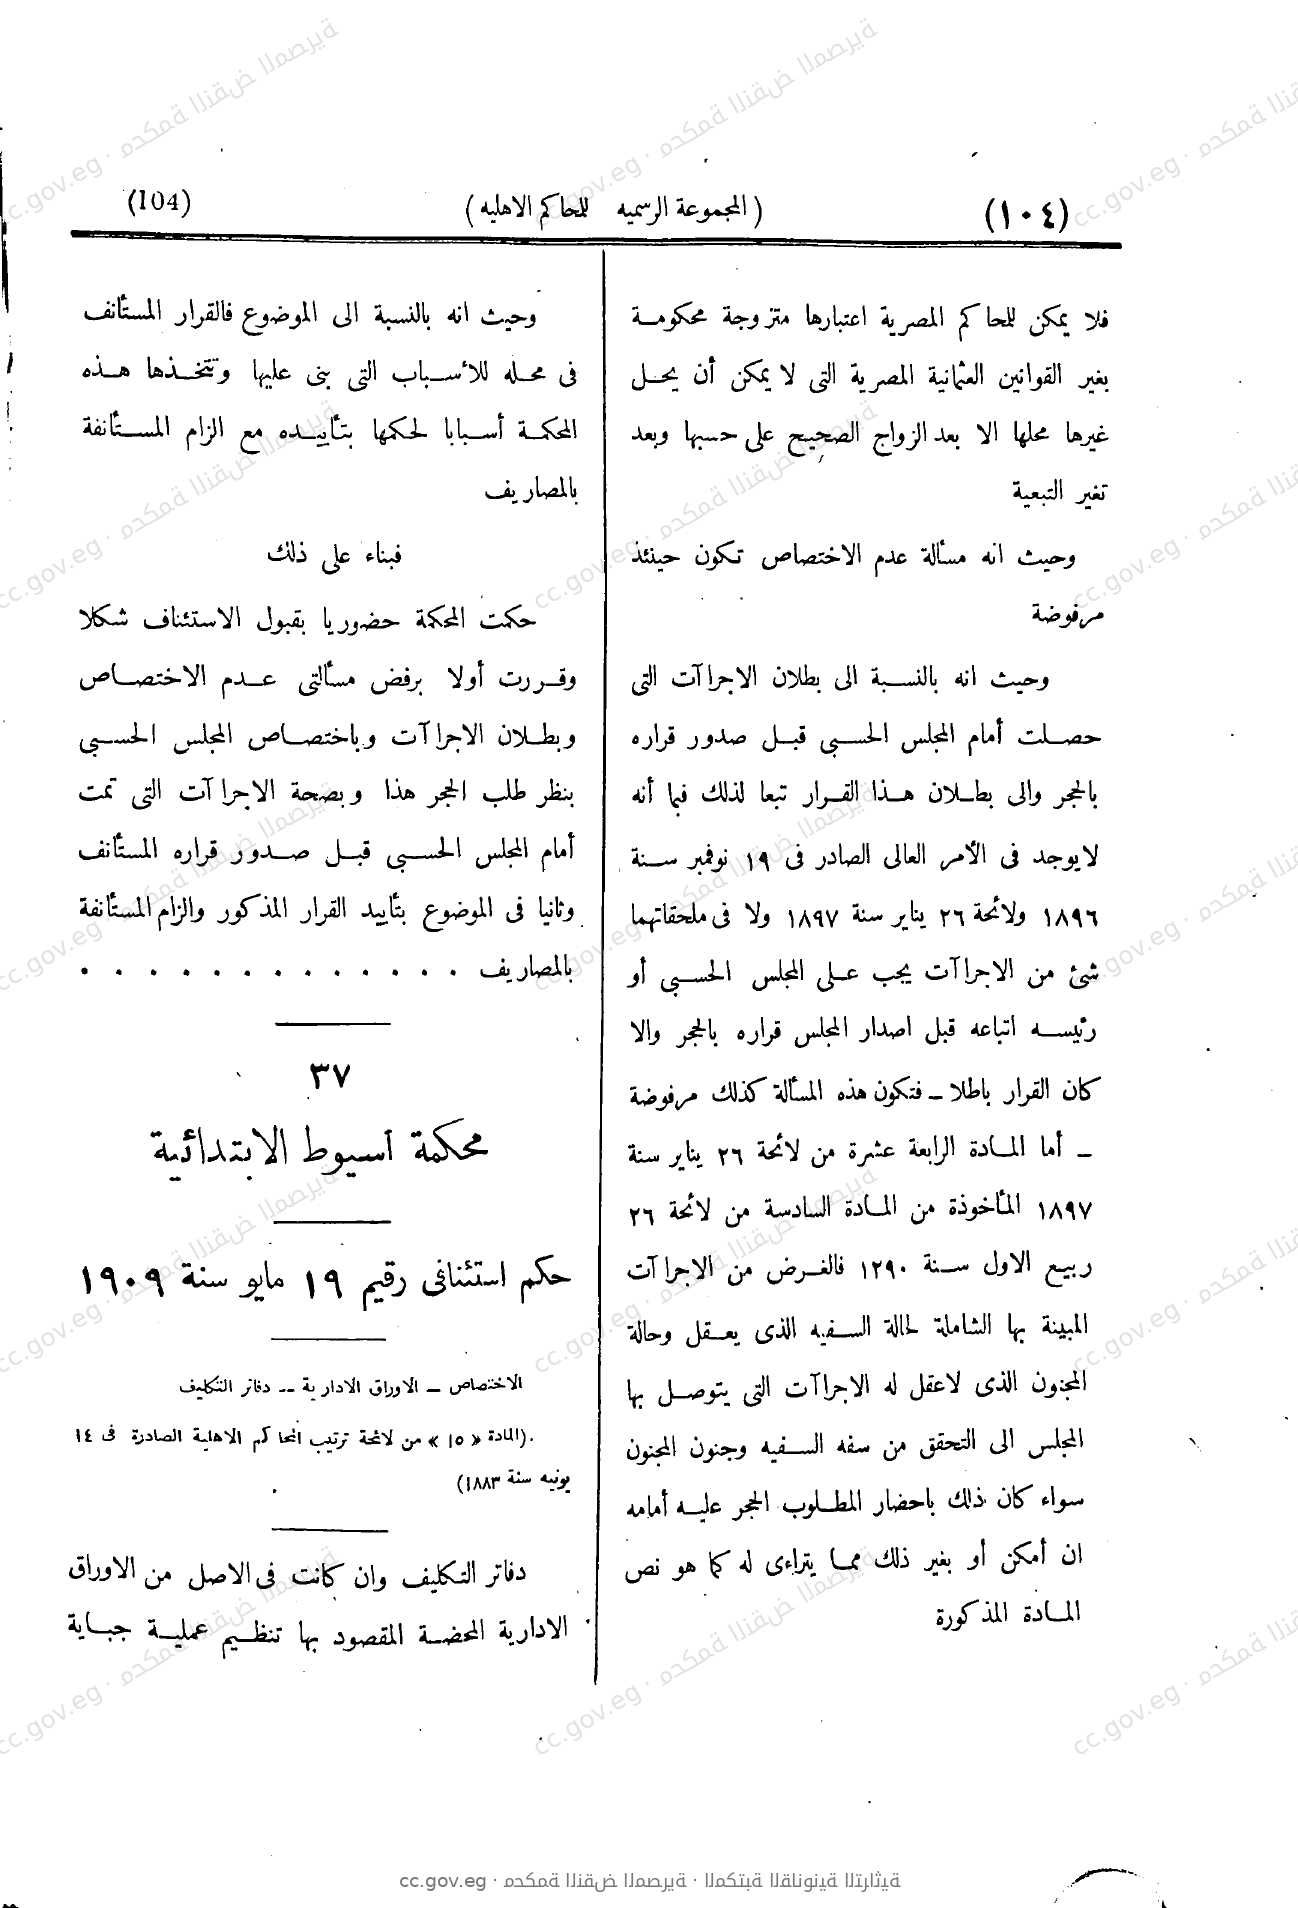 (١٠٤) (المجموعة الرسميه للمحاكم الاهليه) (104)
فلا يمكن للمحاكم المصرية اعتبارها متزوجة محكومة
بغير القوانين العثمانية المصرية التى لا يمكن أن يحل
غيرها محلها الا بعد الزواج الصحيح على حسبها وبعد
تغير التبعية
وحيث انه مسألة عدم الاختصاص تكون حينئذ
مرفوضة
وحيث انه بالنسبة الى بطلان الاجراآت التى
حصلت أمام المجلس الحسبى قبل صدور قراره
بالحجر والى بطلان هذا القرار تبعا لذلك فبما أنه
لا يوجد فى الأمر العالى الصادر فى ١٩ نوفمبر سنة
١٨٩٦ ولائحة ٢٦ يناير سنة ١٨٩٧ ولا فى ملحقاتهما
شئ من الاجراآت يجب على المجلس الحسبى أو
رئيسه اتباعه قبل اصدار المجلس قراره بالحجر والا
كان القرار باطلا – فتكون هذه المسألة كذلك مرفوضة
– أما المادة الرابعة عشرة من لائحة ٢٦ يناير سنة
١٨٩٧ المأخوذة من المادة السادسة من لائحة ٢٦
ربيع الاول سنة ١٢٩٠ فالغرض من الاجراآت
المبينة بها الشاملة لحالة السفيه الذى يعقل وحالة
المجنون الذى لاعقل له الاجراآت التى يتوصل بها
المجلس الى التحقق من سفه السفيه وجنون المجنون
سواء كان ذلك باحضار المطلوب الحجر عليه أمامه
ان أمكن أو بغير ذلك مما يتراءى له كما هو نص
المادة المذكورة
وحيث انه بالنسبة الى الموضوع فالقرار المستأنف
فى محله للأسباب التى بنى عليها وتتخذها هذه
المحكمة أسبابا لحكمها بتأييده مع الزام المستأنفة
بالمصاريف
فبناء على ذلك
حكمت المحكمة حضوريا بقبول الاستئناف شكلا
وقررت أولا برفض مسألتى عدم الاختصاص
وبطلان الاجراآت وباختصاص المجلس الحسبى
بنظر طلب الحجر هذا وبصحة الاجراآت التى تمت
أمام المجلس الحسبى قبل صدور قراره المستأنف
وثانيا فى الموضوع بتأييد القرار المذكور والزام المستأنفة
بالمصاريف . . . . . . . . . . . . .
٣٧
محكمة أسيوط الابتدائية
حكم استئنافى رقيم ١٩ مايو سنة ١٩٠٩
الاختصاص – الاوراق الادارية -- دفاتر التكليف
(المادة «١٥» من لائحة ترتيب المحاكم الاهلية الصادرة فى ١٤
يونيه سنة ١٨٨٣)
دفاتر التكليف وان كانت فى الاصل من الاوراق
الادارية المحضة المقصود بها تنظيم عملية جباية
cc.gov.eg · محكمة النقض المصرية · المكتبة القانونية التراثية